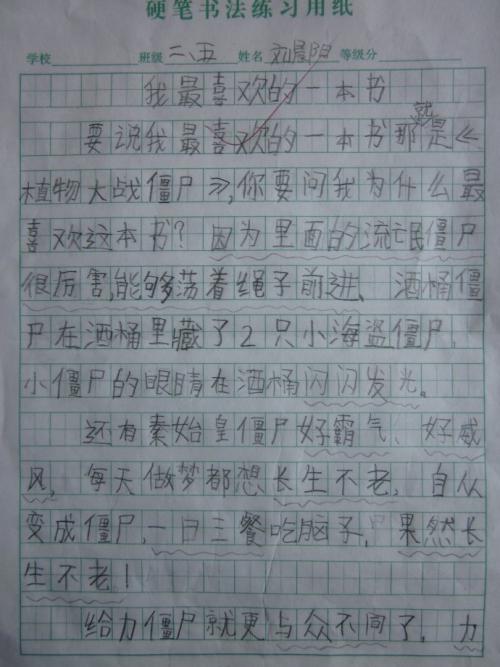 硬笔书法练习用纸
学校 班级 二、五 姓名 刘晨阳 等级分
我最喜欢的一本书
要说我最喜欢的一本书那就是《
植物大战僵尸》,你要问我为什么最
喜欢这本书?因为里面的流氓僵尸
很厉害,能够荡着绳子前进、酒桶僵
尸在酒桶里藏了2只小海盗僵尸,
小僵尸的眼睛在酒桶闪闪发光。
还有秦始皇僵尸好霸气、好威
风,每天做梦都想长生不老,自从
变成僵尸,一日三餐吃脑子,果然长
生不老!
给力僵尸就更与众不同了,力